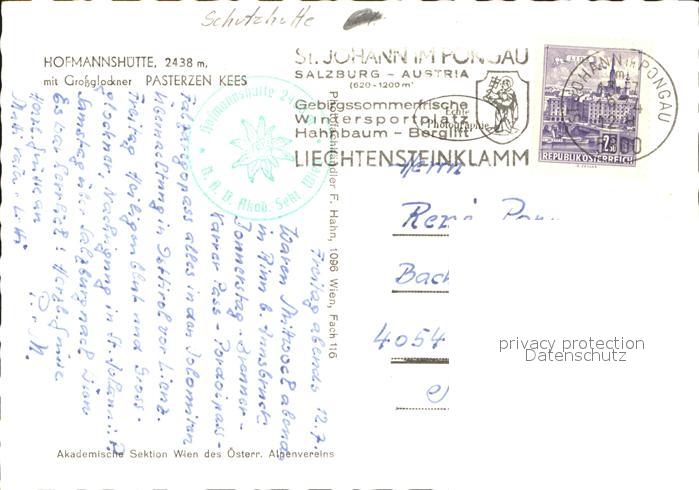 Schutzhütte
HOFMANNSHÜTTE, 2438 m,
mit Großglockner PASTERZEN KEES
ST. JOHANN IM PONGAU
SALZBURG - AUSTRIA
(620-1200m)
Gebirgssommerfrische
Wintersportplatz
Hahnbaum - Berglift
LIECHTENSTEINKLAMM
Echte
Photographie
ST. JOHANN IM PONGAU
5600
REPUBLIK ÖSTERREICH
Hofmannshütte
Ö. A. V. Akad. Sekt. Wien
Photofachhändler F. Hahn, 1096 Wien, Fach 116
Freitag abends 12.7.
Waren Mittwoch abend
in Rinn b. Innsbruck
Donnerstag - Brenner -
Karrer Pass - Pordoipass -
Falzaregopass alles in den Dolomiten
Übernachtung in Osttirol vor Lienz.
Freitag Heiligenblut und Gross-
glockner, Nachtigung in St. Johann i. P.
Samstag über Salzburg nach Wien
Es ist herrlich! Herzl. Grüsse
Herr
René
4054
Akademische Sektion Wien des Österr. Alpenvereins
privacy protection
Datenschutz